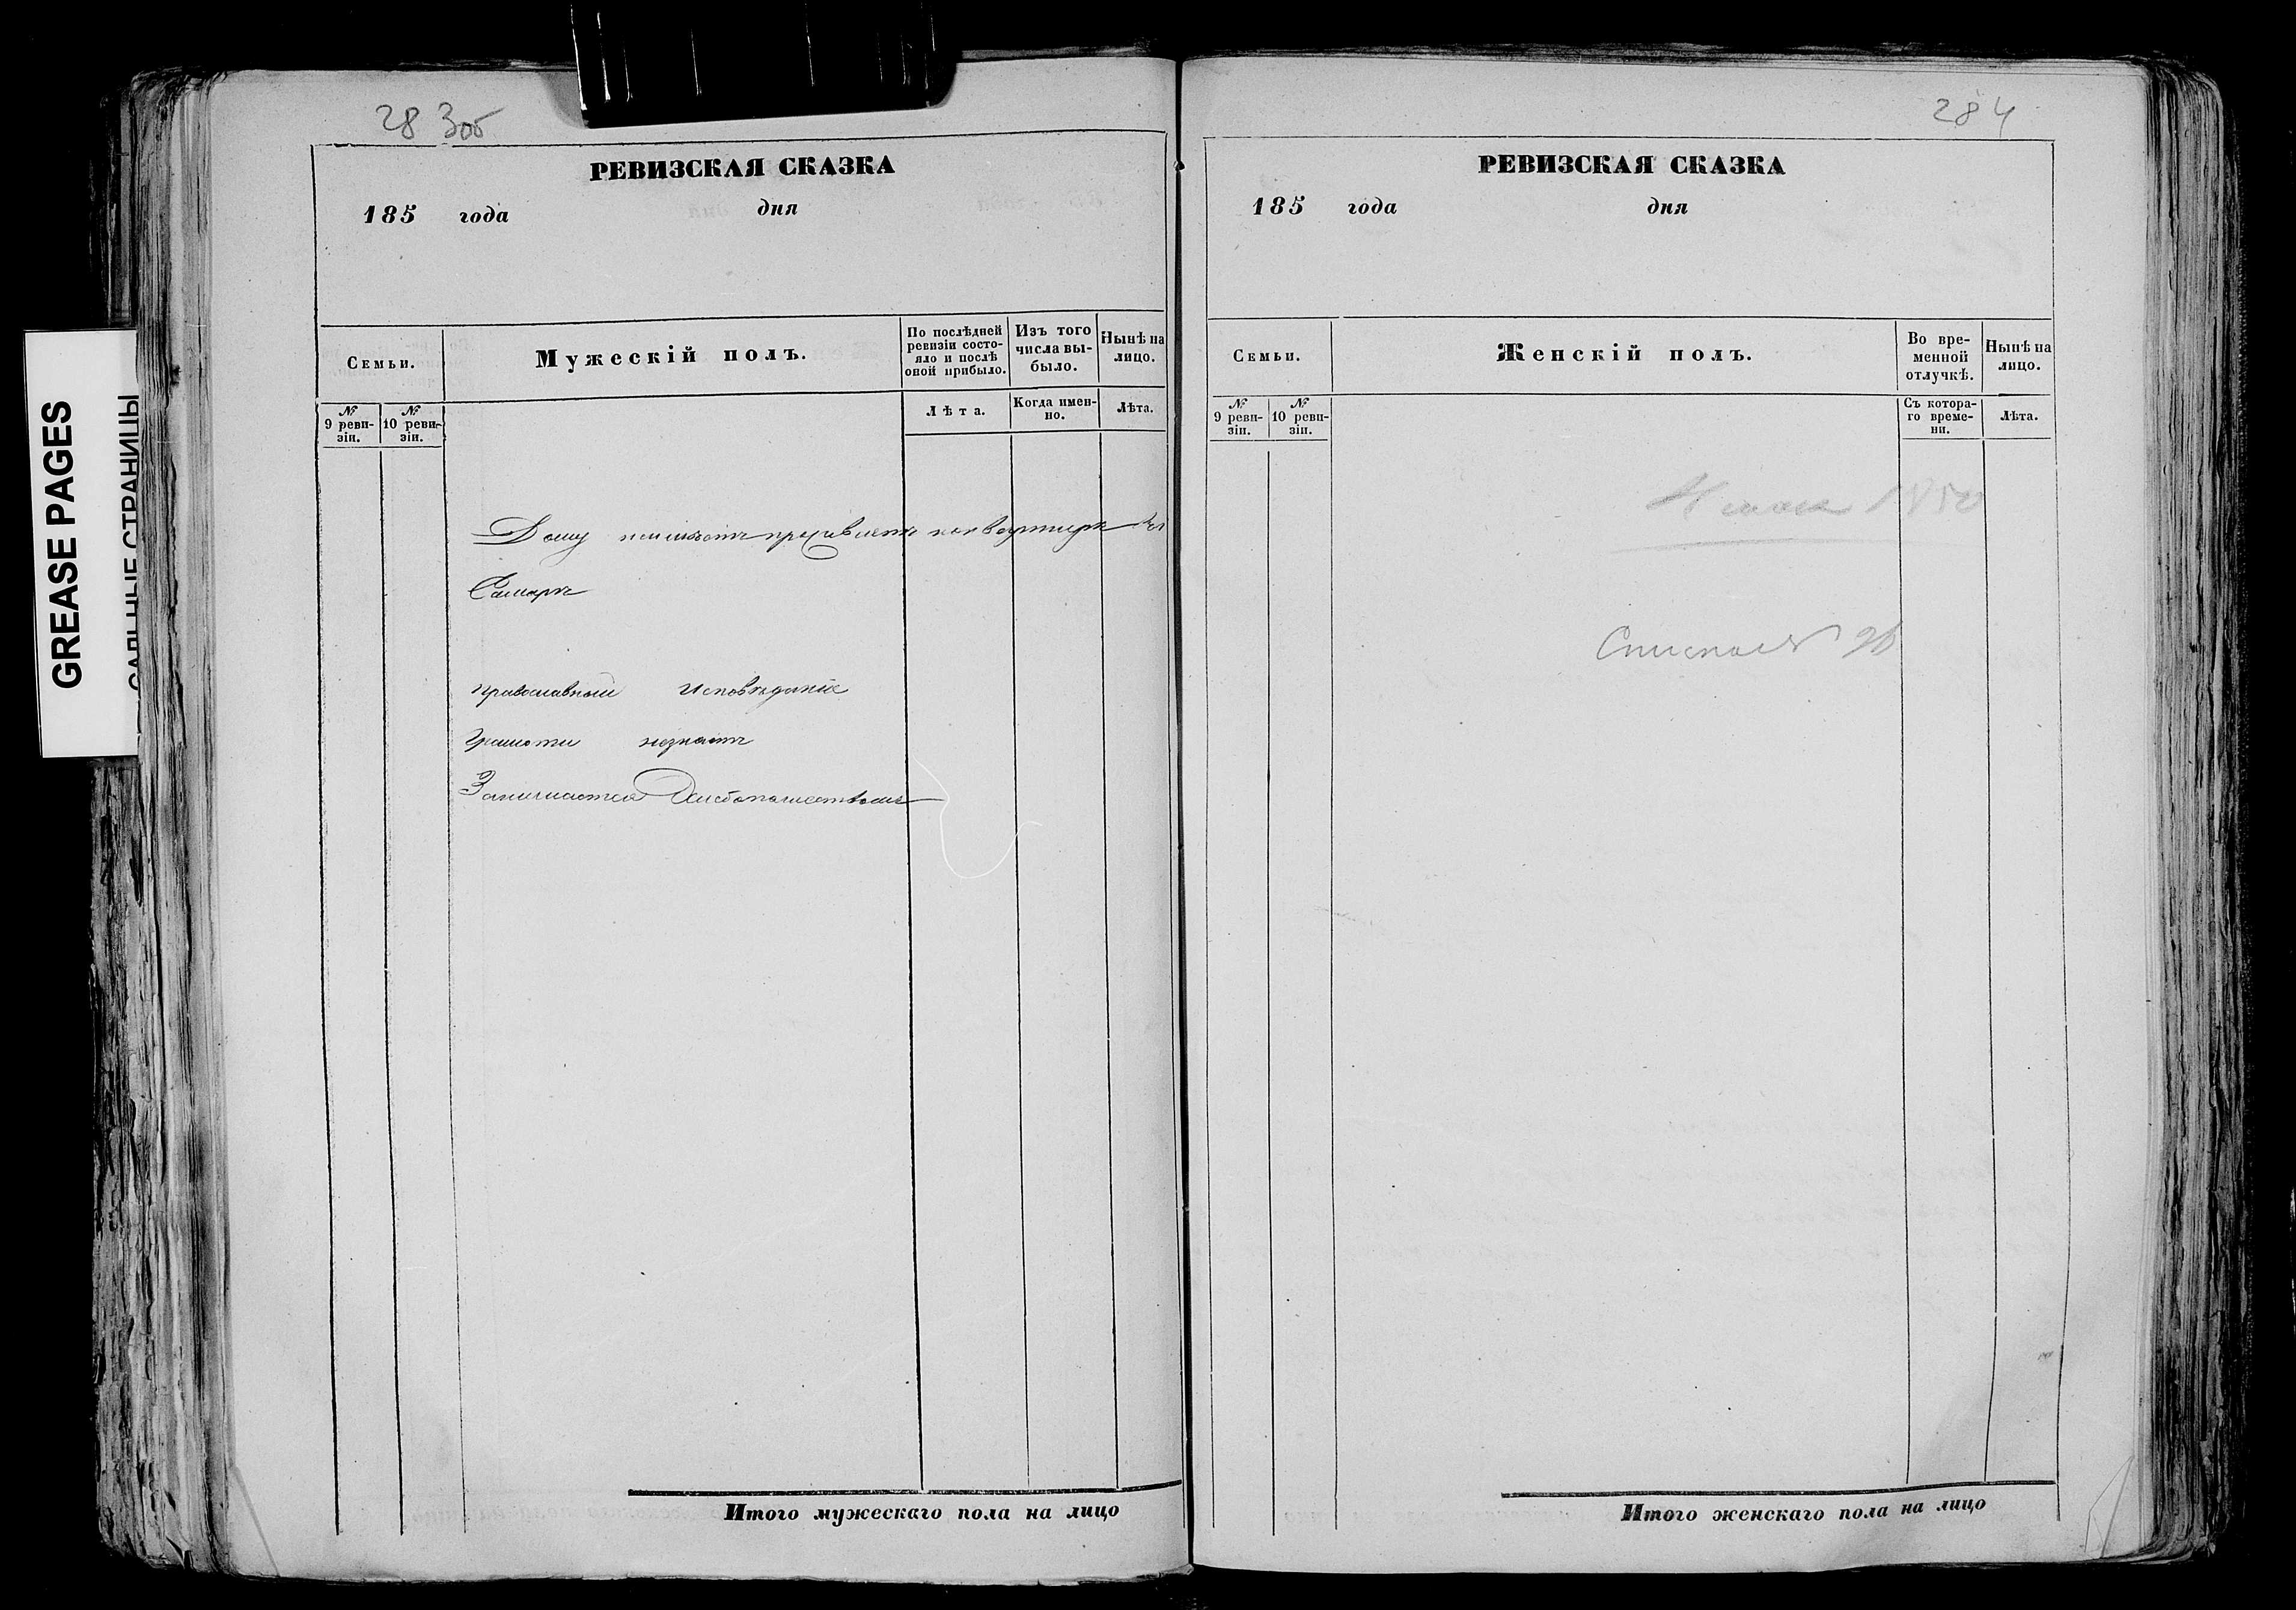 GREASE PAGES
САЛЬНЫЕ СТРАНИЦЫ
283 об
РЕВИЗСКАЯ СКАЗКА
185 года дня
Семьи.
Мужескій полъ.
По послѣдней ревизіи состо-
яло и послѣ
оной прибыло.
Изъ того
числа вы-
было.
Нынѣ на
лицо.
№
9 реви-
зіи.
№
10 реви-
зіи.
Лѣта.
Когда имен-
но.
Лѣта.
Дому неимѣетъ проживаетъ на квартирѣ въ
Самарѣ
православный исповѣданіе
Грамоти незнаетъ
Занимается Хлебопашествомъ
Итого мужескаго пола на лицо
284
РЕВИЗСКАЯ СКАЗКА
185 года дня
Семьи.
Женскій полъ.
Во вре-
менной
отлучкѣ.
Нынѣ на
лицо.
№
9 реви-
зіи.
№
10 реви-
зіи.
Съ котора-
го време-
ни.
Лѣта.
1850
Итого женскаго пола на лицо